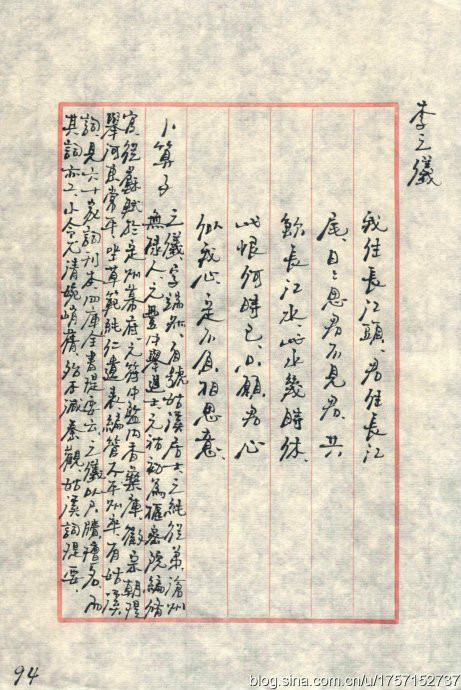 李之儀
我住長江頭、君住長江
尾、日々思君不見君、共
飲長江水、此水幾時休、
此恨何時已、只願君心
似我心、定不負相思意
卜算子
之儀、字端叔、自號姑溪居士、之純從弟、滄州
無棣人、元豐中舉進士、元祐初為樞密院編修
官、從蘇軾於定州幕府、元符中監內香藥庫、徽宗朝提
舉河東常平、坐草範純仁遺表、編管太平州、卒、有姑溪
詞、見六十家詞刊本、四庫全書提要云、之儀以尺牘擅名、而
其詞亦工、小令尤清婉峭蒨、殆不減秦觀、姑溪詞提要、
94
blog.sina.com.cn/u/1757152737